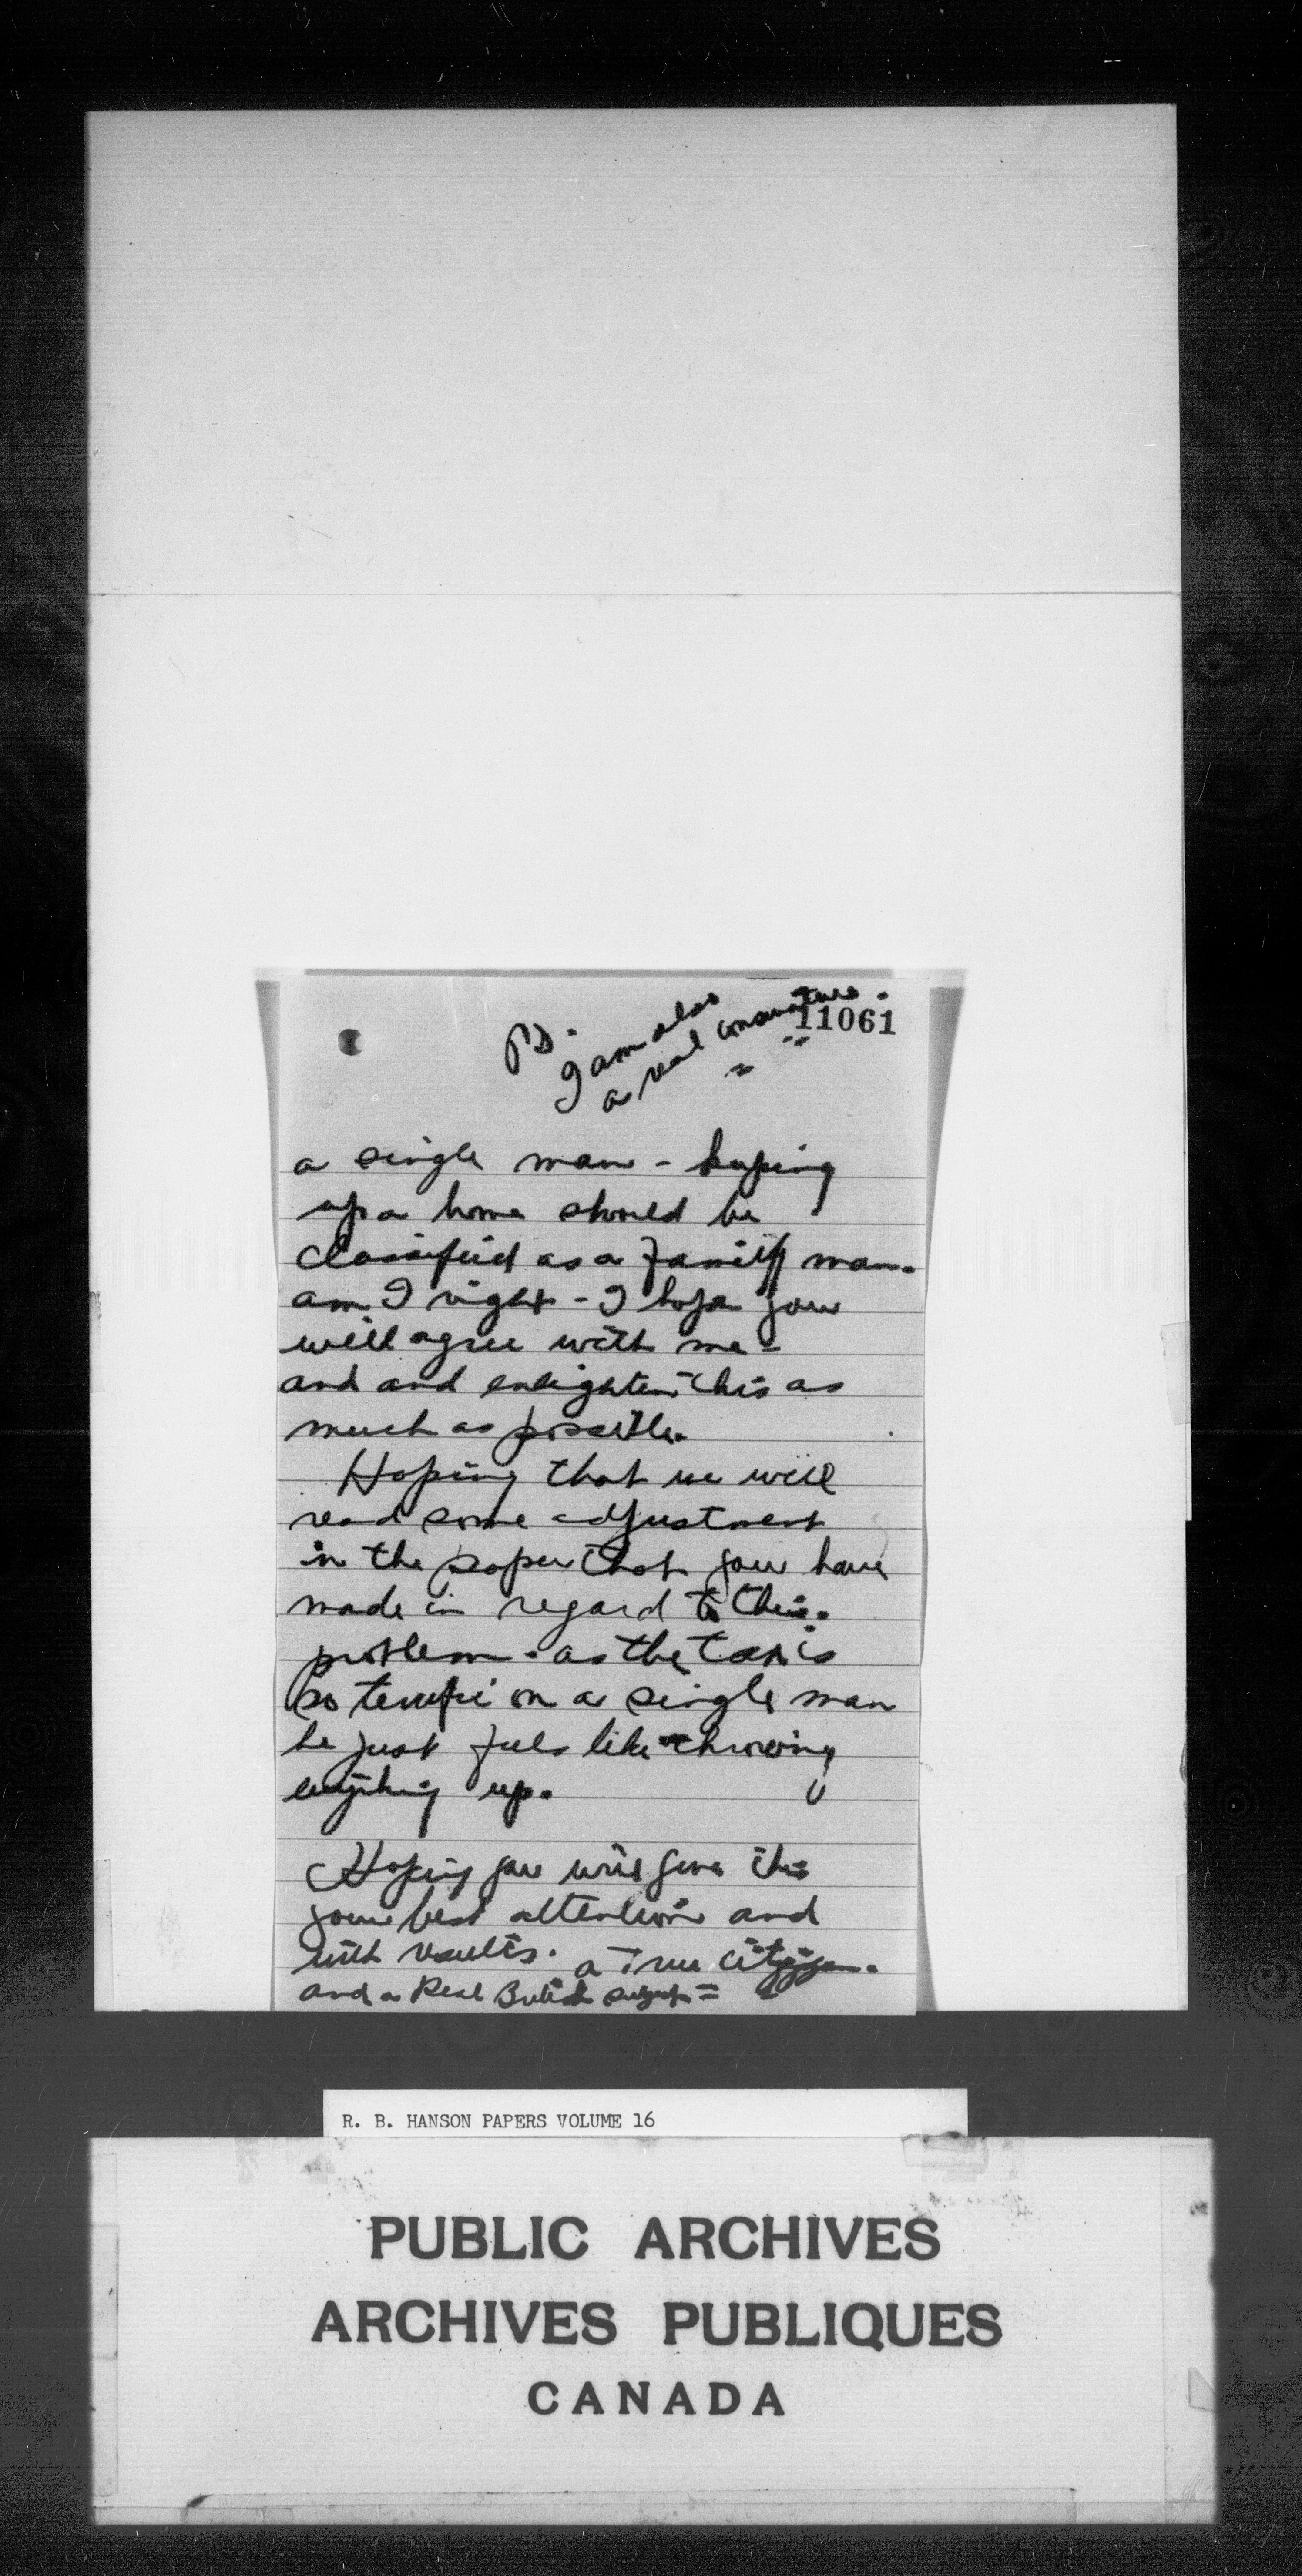 PS.
I am also
a real conservative.
11061
a single man - keeping
up a home should be
classified as a family man.
am I right - I hope you
will agree with me -
and and enlighten this as
much as possible.
Hoping that we will
read some adjustment
in the paper that you have
made in regard to this.
problem - as the tax is
so terrific on a single man
he just feels like throwing
everything up.
Hoping you will give this
your best attention and
with results. a True citizen.
and a Real British subject =
R. B. HANSON PAPERS VOLUME 16
PUBLIC ARCHIVES
ARCHIVES PUBLIQUES
CANADA